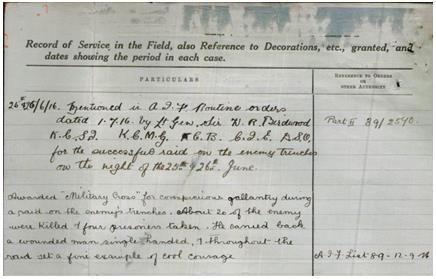 Record of Service in the Field, also Reference to Decorations, etc., granted, and
dates showing the period in each case.
PARTICULARS
REFERENCE TO ORDERS
OR
OTHER AUTHORITY
26/6/16. Mentioned in A.I.F Routine orders
dated 1.7.16. by Lt Gen Sir W. R. Birdwood
K.C.S.I. K.C.M.G. C.B. C.I.E. D.S.O.
for the successful raid on the enemy trenches
on the night of the 25th & 26th June.
Part II 89/2590.
Awarded "Military Cross" for conspicuous gallantry during
a raid on the enemy's trenches. About 20 of the enemy
were killed & four prisoners taken. He carried back
a wounded man single handed, & throughout the
raid set a fine example of cool courage
A.I.F List 89-12-9-16